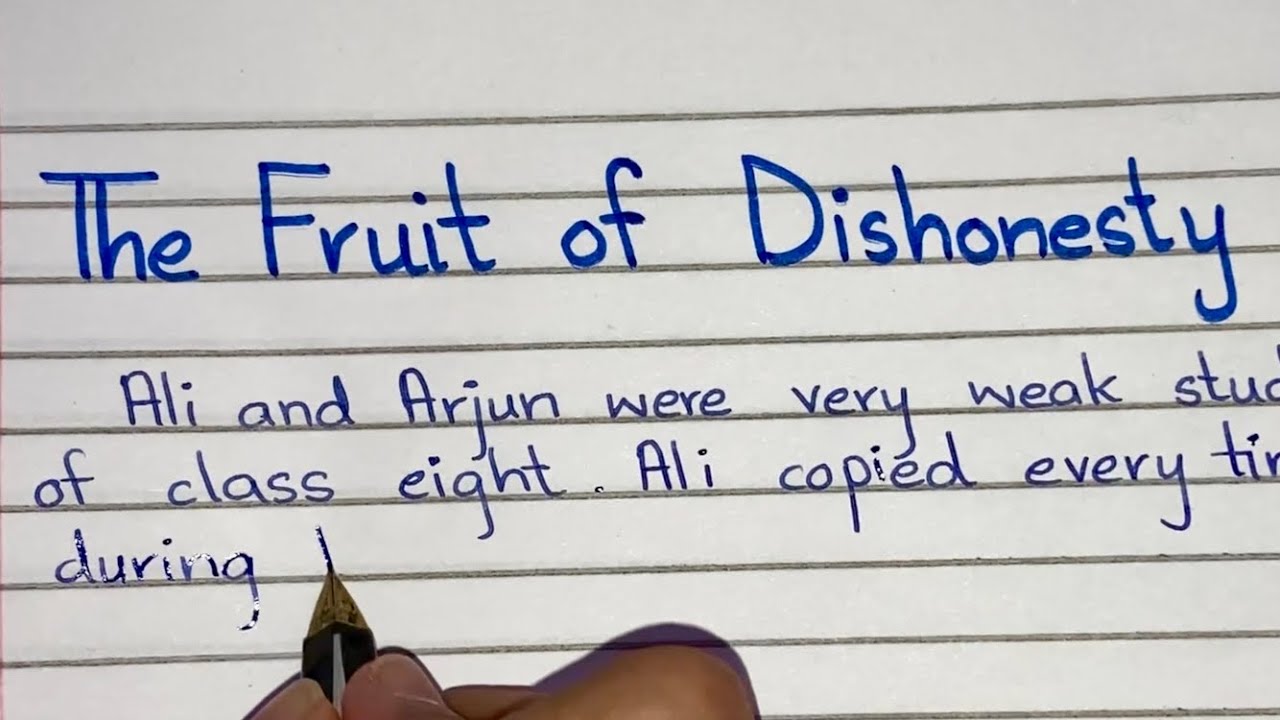 The Fruit of Dishonesty
Ali and Arjun were very weak stud
of class eight. Ali copied every tim
during